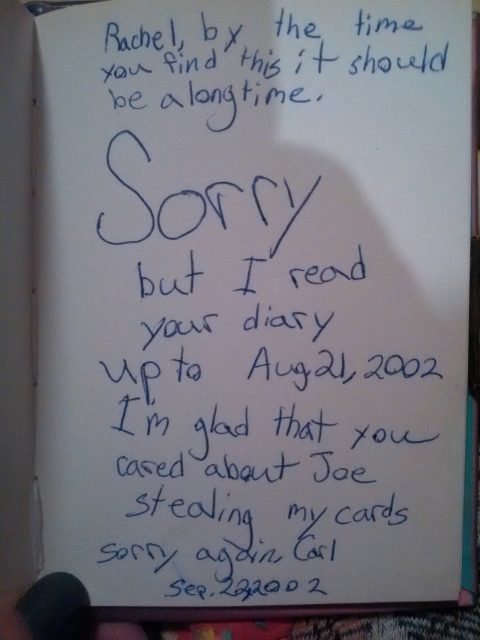 Rachel, by the time
you find this it should
be a long time.
Sorry
but I read
your diary
up to Aug 21, 2002
I'm glad that you
cared about Joe
stealing my cards
sorry again, Carl
Sep. 22, 2002